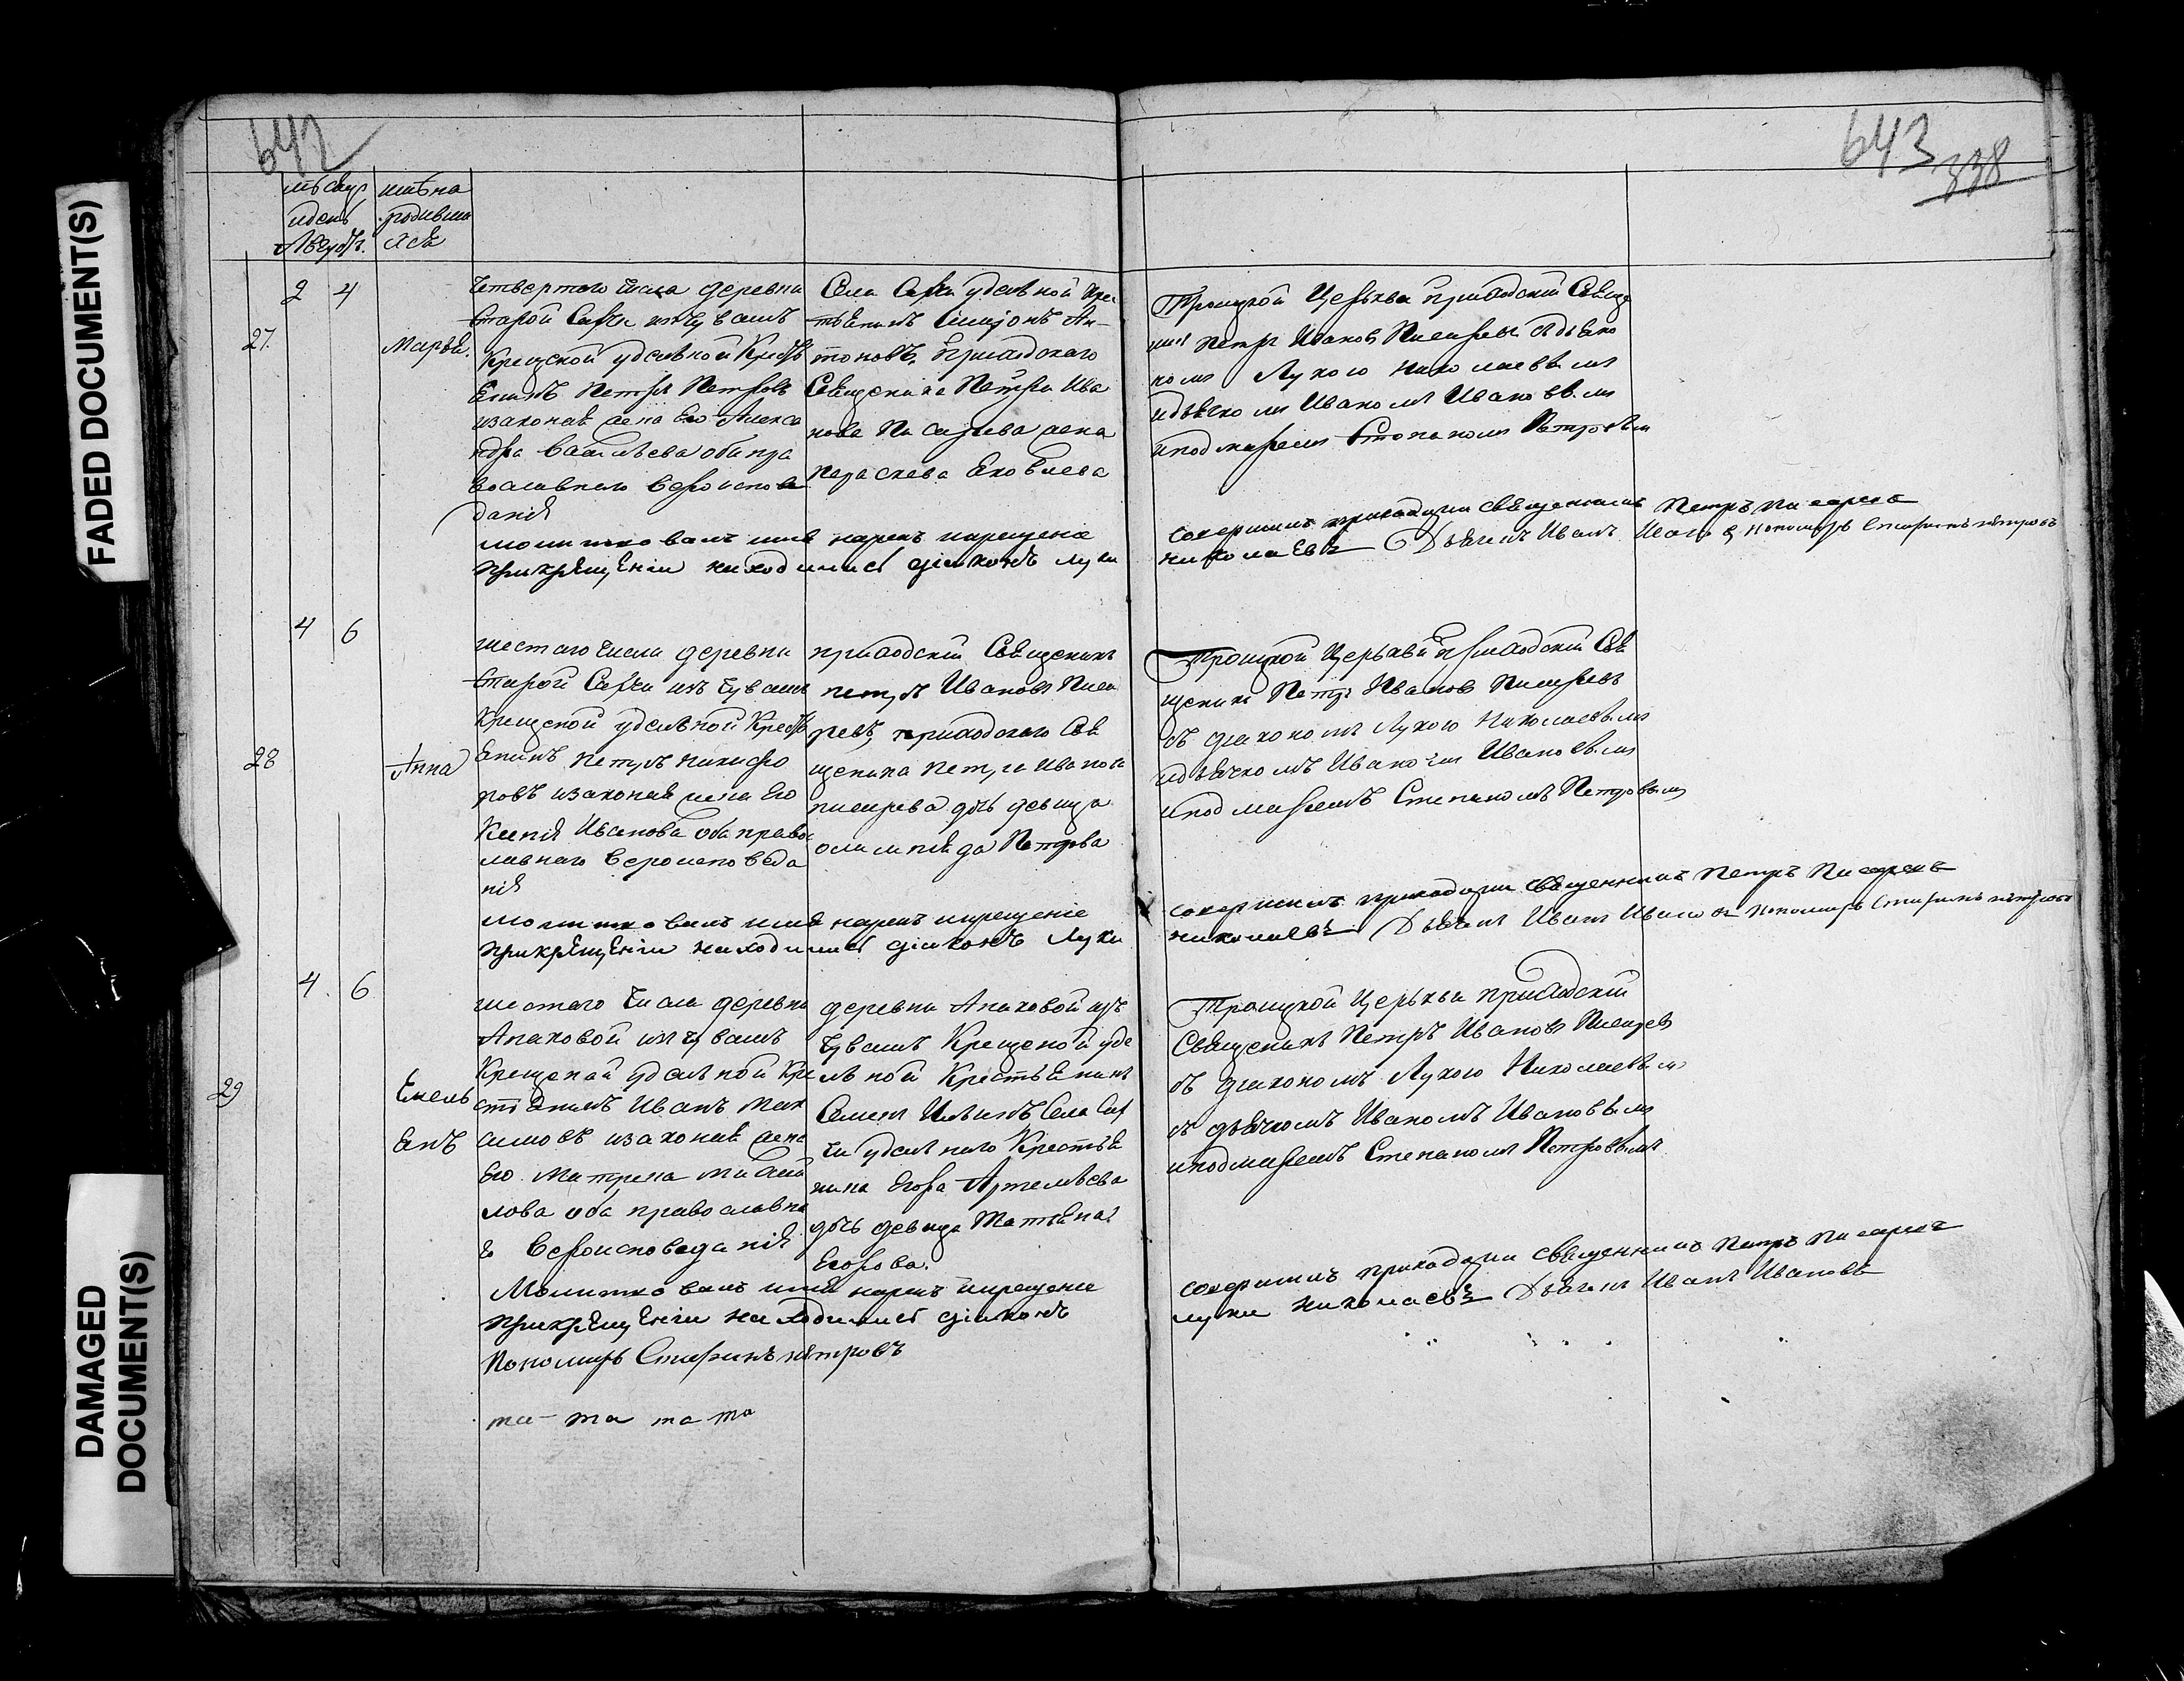 FADED DOCUMENT(S)
DAMAGED
DOCUMENT(S)
642
643
338
мѣсяцъ
и день
Августъ.
имѣна
родивши
хся
27.
2 4
Марѳа.
Четвертаго числа деревни
Старой Сарѣи изъ чувашъ
Крещеной удѣльной Кресть
янинъ Петръ Петровъ
и законная жена его Алекса
ндра Васильева оба пра
вославнаго вероиспове
данія
Села Сарѣи удѣльной Крес
тьянинъ Симіонъ Ан-
тоновъ, приходскаго
Священника Петра Ива
нова Писарева жена
Параскева Яковлева
Троицкой Церькви приходскій Свяще
никъ Петръ Ивановъ Писаревъ съ дьяко
номъ Лукою Николаевымъ
и дьячкомъ Иваномъ Ивановымъ
и подмаремъ Степаномъ Петровымъ
молитвовалъ имя нарекъ икрещение
совершилъ приходский священникъ Петръ Писаревъ
прикрещении находился діяконъ Лука
николаевъ Дьячекъ Иванъ Ивановъ Пономарь Стефанъ петровъ
28
4 6
Анна
шестаго числа деревни
Старой Сарѣи изъ чувашъ
Крещеной удѣльной Кресть
янинъ Петръ Никифо
ровъ и законная жена его
Ксенія Иванова оба правос
лавнаго вероисповеда
нія
приходскій Священикъ
петръ Ивановъ Писа
ревъ, приходскаго Свя
щеника Петра Иванова
писарева дочь девица
олимпіяда Петрова
Троицкой Церькви приходскій Свя
щеникъ Петръ Ивановъ Писаревъ
съ діакономъ Лукою Николаевымъ
и дьячкомъ Иваномъ Ивановымъ
и подмаремъ Степаномъ Петровымъ
молитвовалъ имя нарекъ икрещеніе
совершилъ приходский священникъ Петръ Писаревъ
прикрещении находился діяконъ Лука
николаевъ Дьячекъ Иванъ Ивановъ Пономарь Стефанъ петровъ
29
4. 6
Емель
янъ
шестаго числа деревни
Апаховой изъ чувашъ
Крещеной удѣльной Кре
стьянинъ Иванъ Мак
симовъ и законная жена
его Матрена Михай
лова оба православна
го вероисповеданія
деревни Апаховой изъ
чувашъ Крещеной уде
льной Крестьянинъ
Семенъ Ильинъ Села Сар
ѣи удѣльнаго Крестья
нина Егора Артемьева
дочь девица Татьяна
Егорова.
Троицкой Церькви приходскій
Священикъ Петръ Ивановъ Писаревъ
съ діакономъ Лукою Николаевымъ
съ дьячкомъ Иваномъ Ивановымъ
и подмаремъ Степаномъ Петровымъ
Молитвовалъ имя нарекъ икрещение
совершилъ приходский священникъ Петръ Писаревъ
прикрещении находился діяконъ
лука николаевъ Дьячекъ Иванъ Ивановъ
Пономарь Стефанъ петровъ
та- та та та